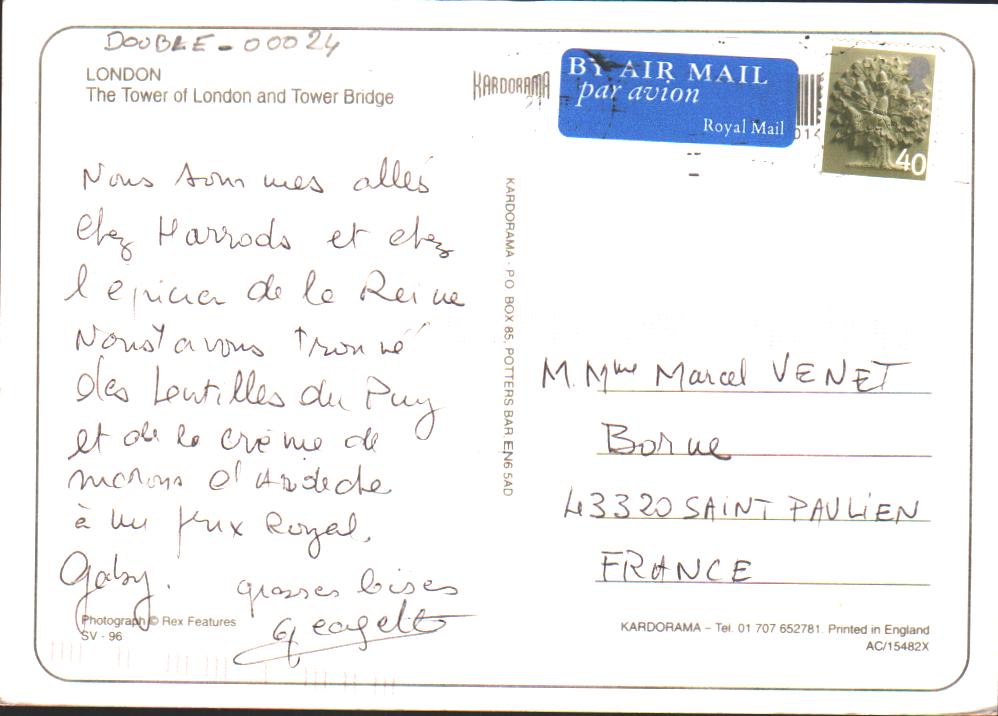 DOUBLE - 00024
LONDON
The Tower of London and Tower Bridge
KARDORAMA
BY AIR MAIL
par avion
Royal Mail
40
Nous sommes allés
chez Harrods et chez
l'épicier de la Reine
Nous avons trouvé
des Lentilles du Puy
et de la crème de
marons d'Ardèche
à un prix Royal.
Gaby. grosses bises
Georgette
KARDORAMA · P.O. BOX 85, POTTERS BAR, EN6 5AD
M. Mme Marcel VENET
Borne
43320 SAINT PAULIEN
FRANCE
Photograph © Rex Features
SV - 96
KARDORAMA – Tel. 01 707 652781. Printed in England
AC/15482X